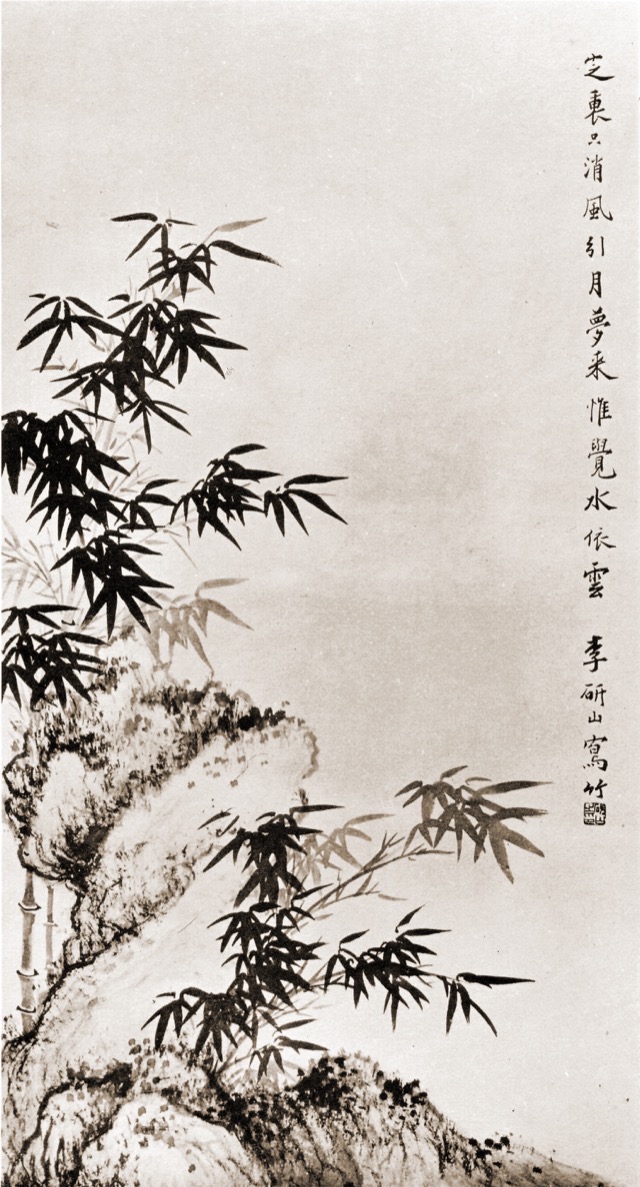 芝裏只消風引月夢来惟覺水依雲 李研山寫竹